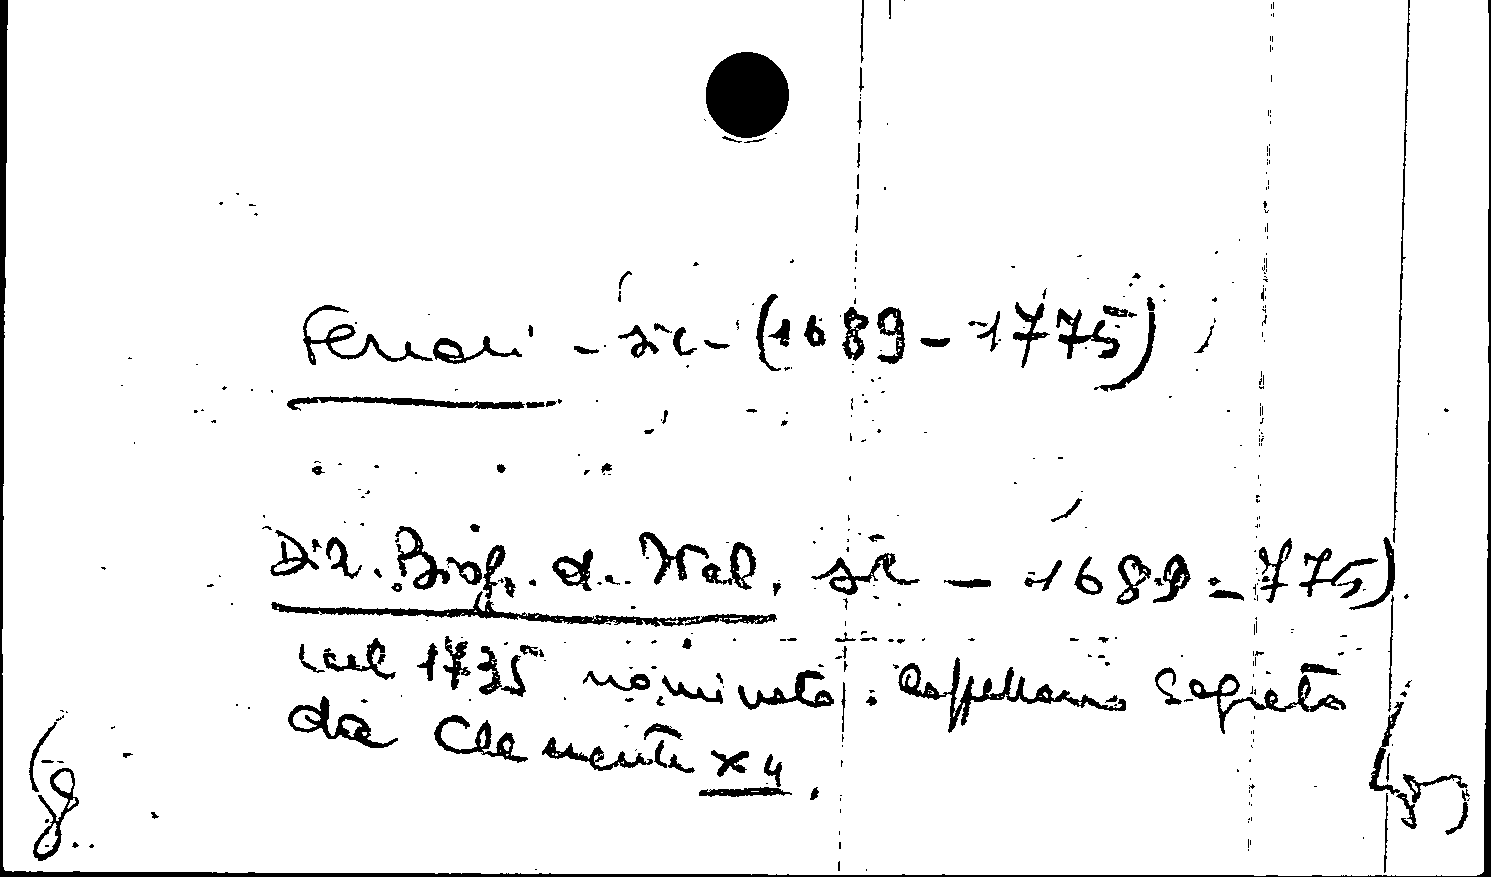 Ferrari - sic - (1689 - 1775)
Diz. Biogr. d. Ital. sic - 1689 - 775)
nel 1735 nominato Cappellano Segreto
da Clemente X4.